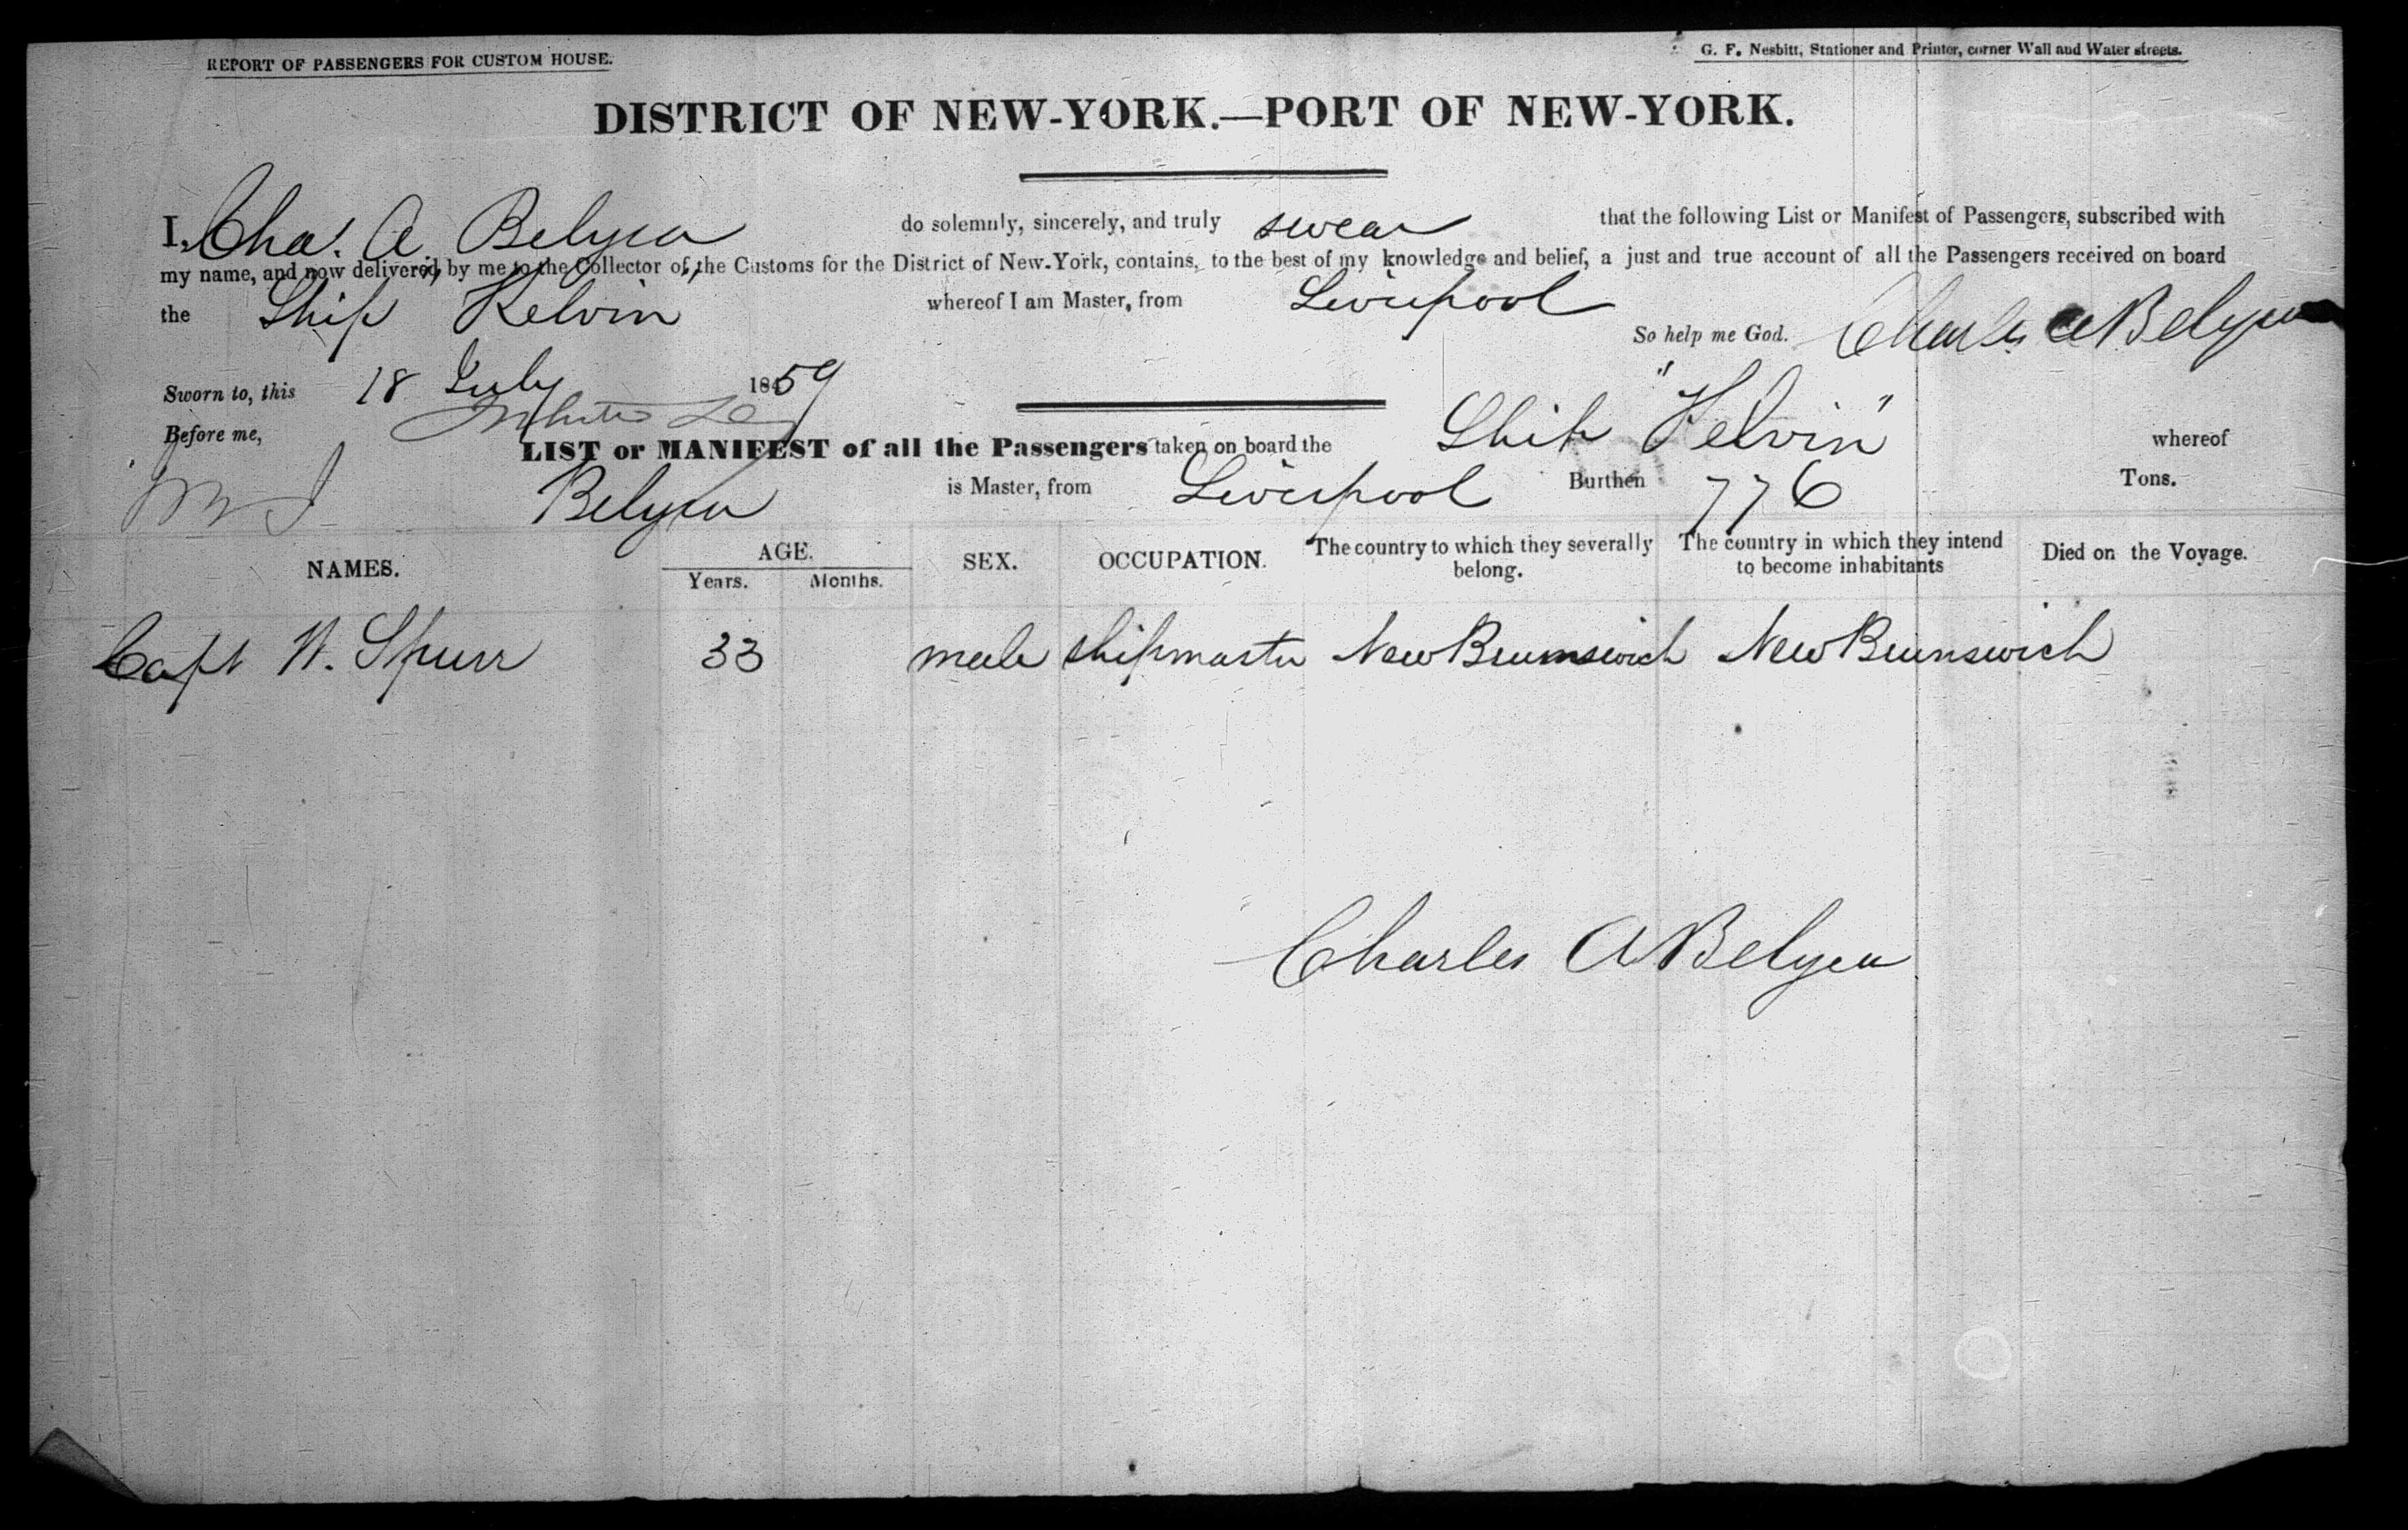 REPORT OF PASSENGERS FOR CUSTOM HOUSE.
G. F. Nesbitt, Stationer and Printer, corner Wall and Water streets.
DISTRICT OF NEW-YORK.—PORT OF NEW-YORK.
I, Cha's. A Belyea do solemnly, sincerely, and truly swear that the following List or Manifest of Passengers, subscribed with
my name, and now delivered by me to the Collector of the Customs for the District of New-York, contains, to the best of my knowledge and belief, a just and true account of all the Passengers received on board
the Ship Kelvin whereof I am Master, from Liverpool
So help me God. Charles A Belyea
Sworn to, this 18 July 1859
Before me,
LIST or MANIFEST of all the Passengers taken on board the Ship "Kelvin" whereof
Belyea is Master, from Liverpool Burthen 776 Tons.
NAMES. AGE. Years. Months. SEX. OCCUPATION. The country to which they severally belong. The country in which they intend to become inhabitants Died on the Voyage.
Capt W. Spurr 33 male shipmaster New Brunswick New Brunswick
Charles A Belyea